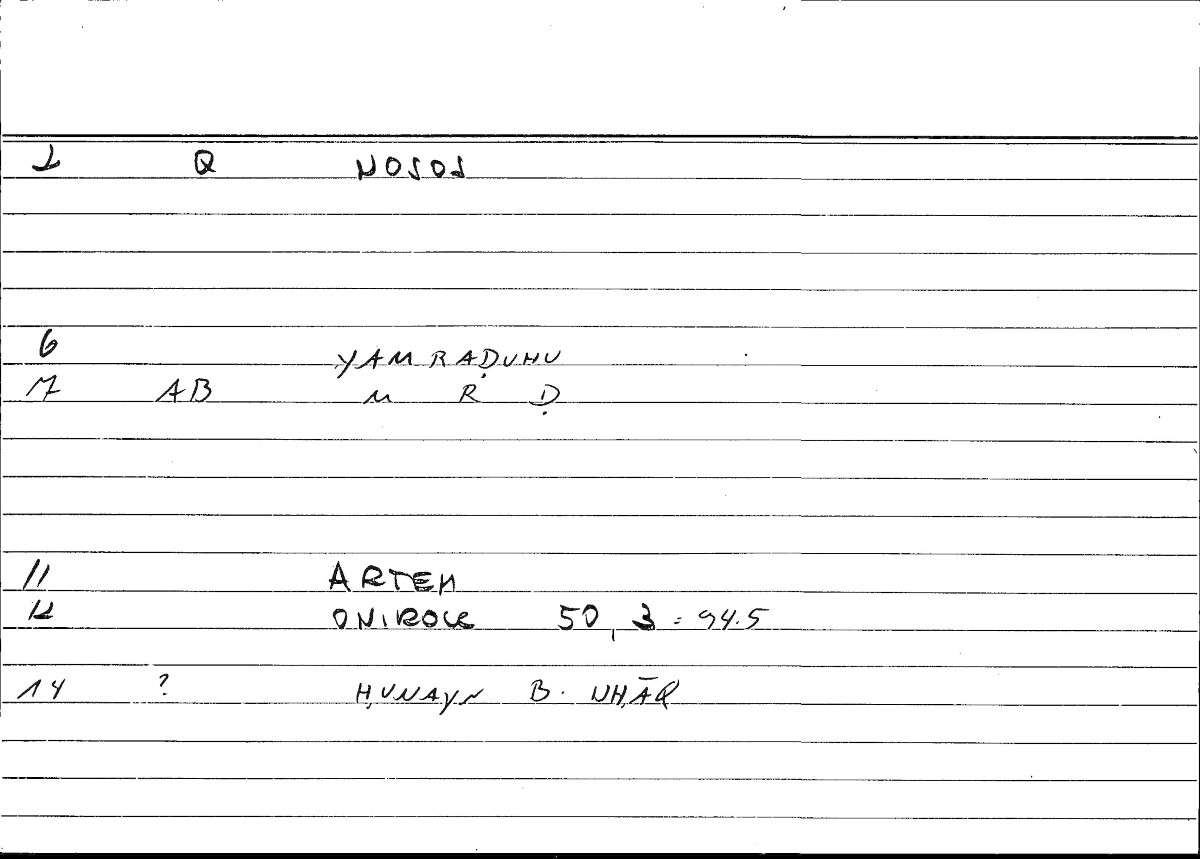 1 Q NOSOS
6 YAMRAḌUHU
7 AB M R Ḍ
11 ARTEM
12 ONIROCR 50,3 = 94.5
14 ? ḤUNAYN B. ISḤĀQ